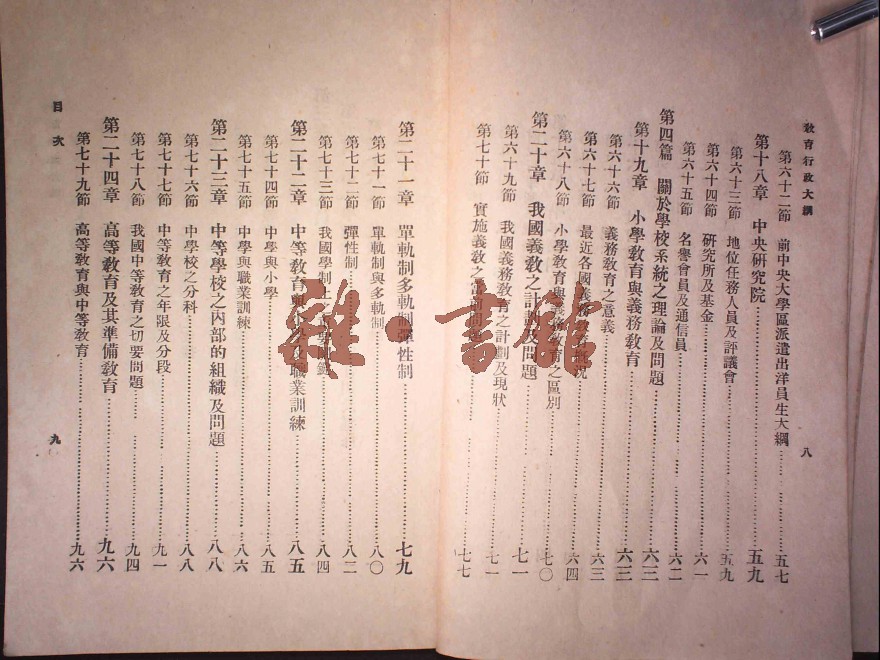 教育行政大綱
第六十二節 前中央大學區派遣出洋員生大綱 五七
第十八章 中央研究院 五九
第六十三節 地位任務人員及評議會 五九
第六十四節 研究所及基金 六一
第六十五節 名譽會員及通信員 六二
第四篇 關於學校系統之理論及問題 六三
第十九章 小學教育與義務教育 六三
第六十六節 義務教育之意義 六三
第六十七節 最近各國義務教育概況 六三
第六十八節 小學教育與義務教育之區別 六四
第二十章 我國義教之計劃及問題 七〇
第六十九節 我國義務教育之計劃及現狀 七一
第七十節 實施義教之當前問題 七七
八
第二十一章 單軌制多軌制彈性制 七九
第七十一節 單軌制與多軌制 八〇
第七十二節 彈性制 八二
第七十三節 我國學制上之 八四
第二十二章 中等教育與小學及職業訓練 八五
第七十四節 中學與小學 八五
第七十五節 中學與職業訓練 八六
第二十三章 中等學校之內部的組織及問題 八八
第七十六節 中學校之分科 八八
第七十七節 中等教育之年限及分段 九一
第七十八節 我國中等教育之切要問題 九四
第二十四章 高等教育及其準備教育 九六
第七十九節 高等教育與中等教育 九六
目次
九
雜·書館